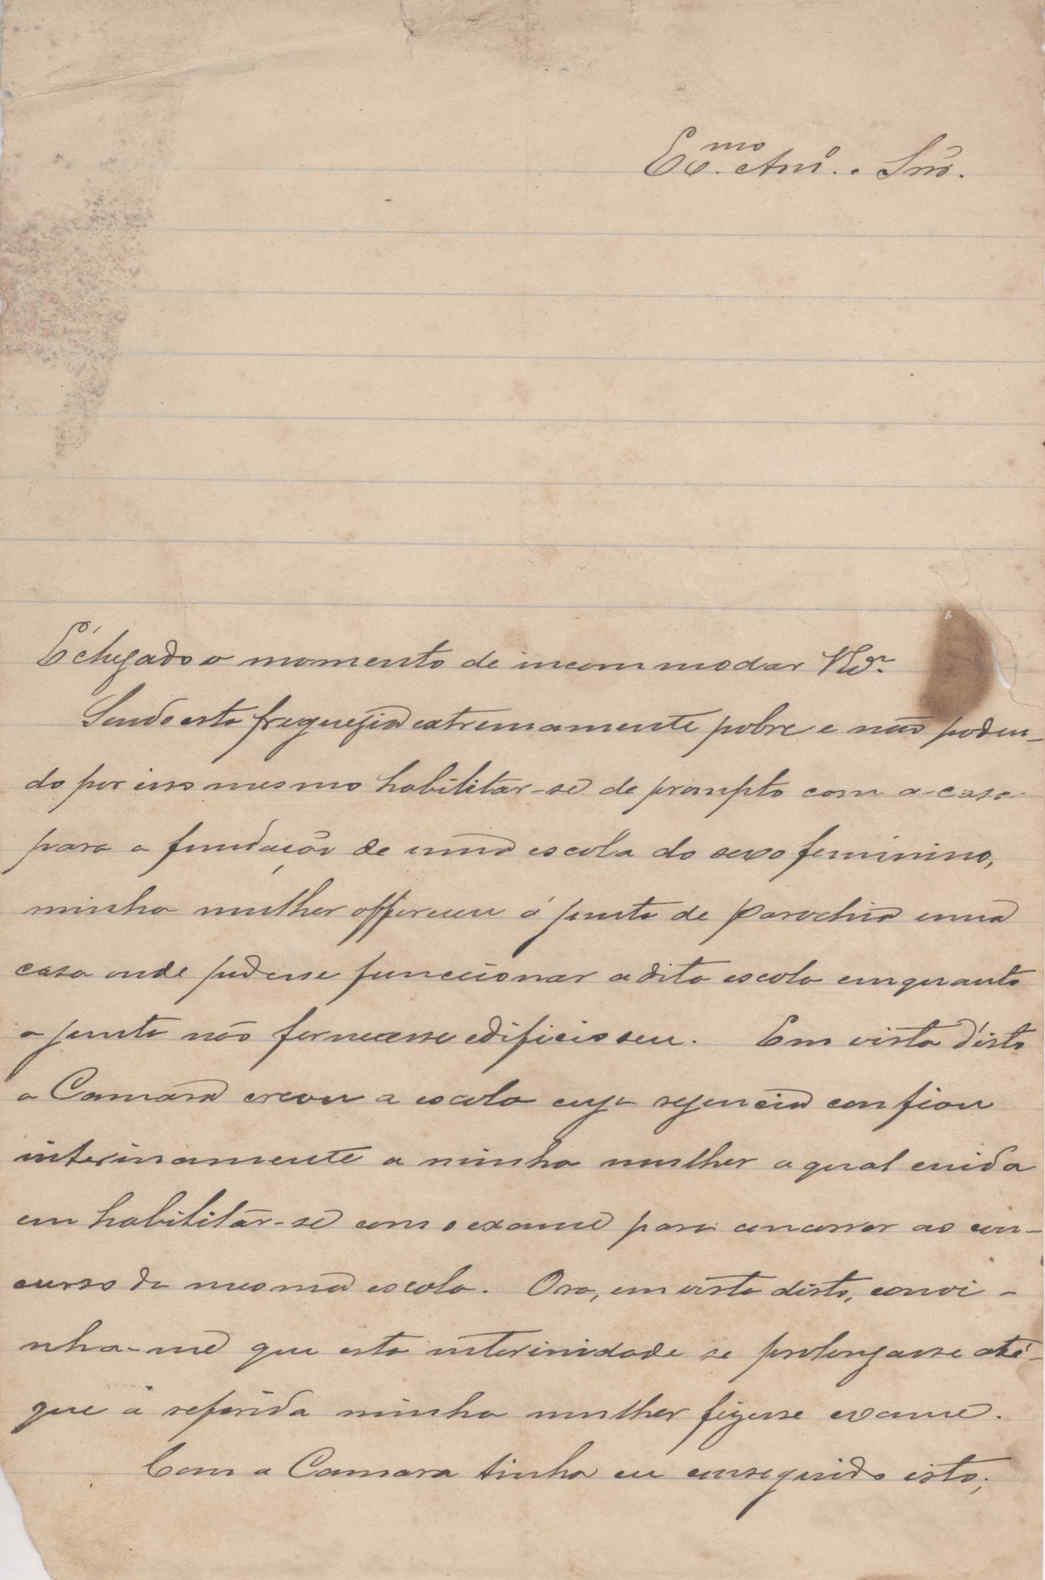 Ex.mo Am.º e Snr.
É chegado o momento de incommodar V. Ex.ª
Sendo esta freguezia extremamente pobre e não poden-
do por isso mesmo habilitar-se de prompto com a casa
para a fundação de uma escola do sexo feminino,
minha mulher offereceu á junta de Parochia uma
casa onde podesse funccionar a dita escola emquanto
a junta não fornecesse edificio seu. Em vista d'isto
a Camara creou a escola cuja regencia confiou
interinamente a minha mulher a qual cuida
em habilitar-se com o exame para concorrer ao con-
curso da mesma escola. Ora, em vista disto, convi-
nha-me que esta interinidade se prolongasse até-
que a referida minha mulher fizesse exame.
Com a Camara tinha eu conseguido isto;